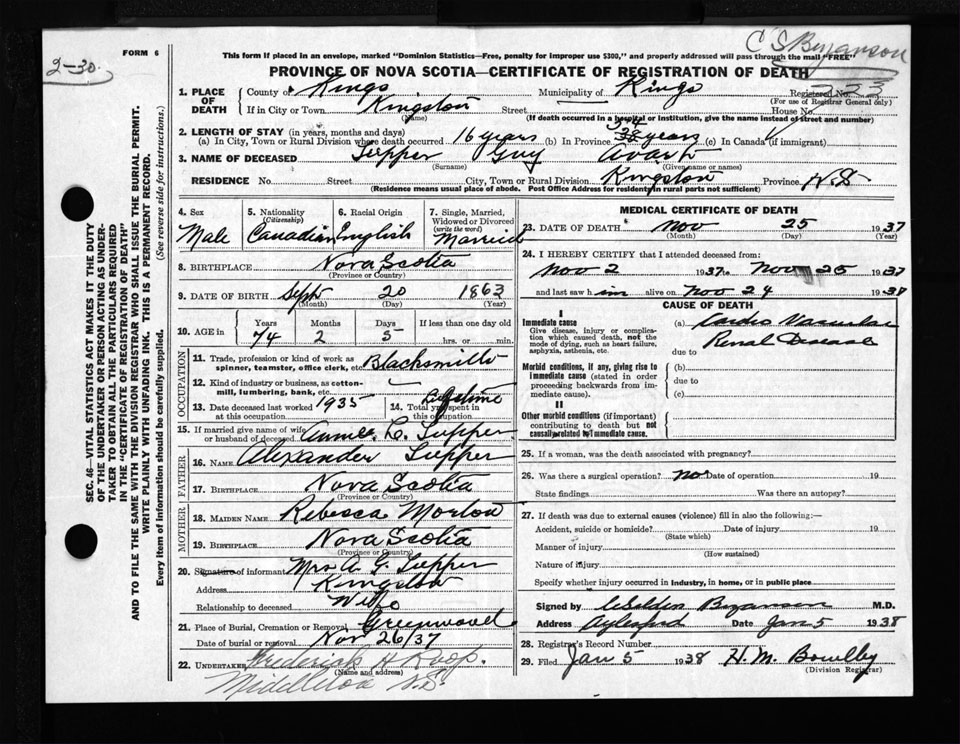 C S Bezanson
FORM 6
2-30
This form if placed in an envelope, marked "Dominion Statistics—Free, penalty for improper use $300," and properly addressed will pass through the mail "FREE"
PROVINCE OF NOVA SCOTIA—CERTIFICATE OF REGISTRATION OF DEATH
1. PLACE OF DEATH County of Kings Municipality of Kings Registered No.
(For use of Registrar General only)
If in City or Town Kingston Street House No.
(Name) (If death occurred in a hospital or institution, give the name instead of street and number)
2. LENGTH OF STAY (in years, months and days)
(a) In City, Town or Rural Division where death occurred 16 years (b) In Province 74 years (c) In Canada (if immigrant)
3. NAME OF DECEASED Tupper Guy
(Surname) (Given name or names)
RESIDENCE No. Street City, Town or Rural Division Kingston Province N.S
(Residence means usual place of abode. Post Office Address for residents in rural parts not sufficient)
4. Sex Male
5. Nationality (Citizenship) Canadian
6. Racial Origin English
7. Single, Married, Widowed or Divorced (write the word) Married
8. BIRTHPLACE Nova Scotia
(Province or Country)
9. DATE OF BIRTH Sept 20 1863
(Month) (Day) (Years)
10. AGE in Years Months Days If less than one day old
74 2 5 hrs. or min.
OCCUPATION
11. Trade, profession or kind of work as spinner, teamster, office clerk, etc. Blacksmith
12. Kind of industry or business, as cotton-mill, lumbering, bank, etc.
13. Date deceased last worked at this occupation 1935 14. Total yrs. spent in this occupation Lifetime
15. If married give name of wife or husband of deceased Annie L. Tupper
FATHER
16. NAME Alexander Tupper
17. BIRTHPLACE Nova Scotia
(Province or Country)
MOTHER
18. MAIDEN NAME Rebecca Morton
19. BIRTHPLACE Nova Scotia
(Province or Country)
20. Signature of informant Mrs A. G. Tupper
Address Kingston
Relationship to deceased Wife
21. Place of Burial, Cremation or Removal Greenwood
Date of burial or removal Nov 26/37
22. UNDERTAKER Frederick H Roop.
(Name and address)
Middleton N.S.
MEDICAL CERTIFICATE OF DEATH
23. DATE OF DEATH Nov 25 1937
(Month) (Day) (Year)
24. I HEREBY CERTIFY that I attended deceased from:
Nov 2 1937 to Nov 25 1937
and last saw him alive on Nov 24 1937
CAUSE OF DEATH
I
Immediate cause (a) Cardio Vascular
Give disease, injury or complication which caused death, not the mode of dying, such as heart failure, asphyxia, asthenia, etc. Renal Disease
due to
Morbid conditions, if any, giving rise to immediate cause (stated in order proceeding backwards from immediate cause). (b)
due to
(c)
II
Other morbid conditions (if important) contributing to death but not causally related to immediate cause.
25. If a woman, was the death associated with pregnancy?
26. Was there a surgical operation? no Date of operation 19
State findings Was there an autopsy?
27. If death was due to external causes (violence) fill in also the following:—
Accident, suicide or homicide? Date of injury 19
(State which)
Manner of injury
(How sustained)
Nature of injury
Specify whether injury occurred in industry, in home, or in public place
Signed by C Selden Bezanson M.D.
Address Aylesford Date Jan 5 1938
28. Registrar's Record Number
29. Filed Jan 5 1938 H. M. Bowlby
(Division Registrar)
SEC. 46—VITAL STATISTICS ACT MAKES IT THE DUTY
OF THE UNDERTAKER OR PERSON ACTING AS UNDER-
TAKER TO OBTAIN ALL THE PARTICULARS REQUIRED
IN THE "CERTIFICATE OF REGISTRATION OF DEATH"
AND TO FILE THE SAME WITH THE DIVISION REGISTRAR WHO SHALL ISSUE THE BURIAL PERMIT.
WRITE PLAINLY WITH UNFADING INK. THIS IS A PERMANENT RECORD.
Every item of information should be carefully supplied. (See reverse side for instructions.)